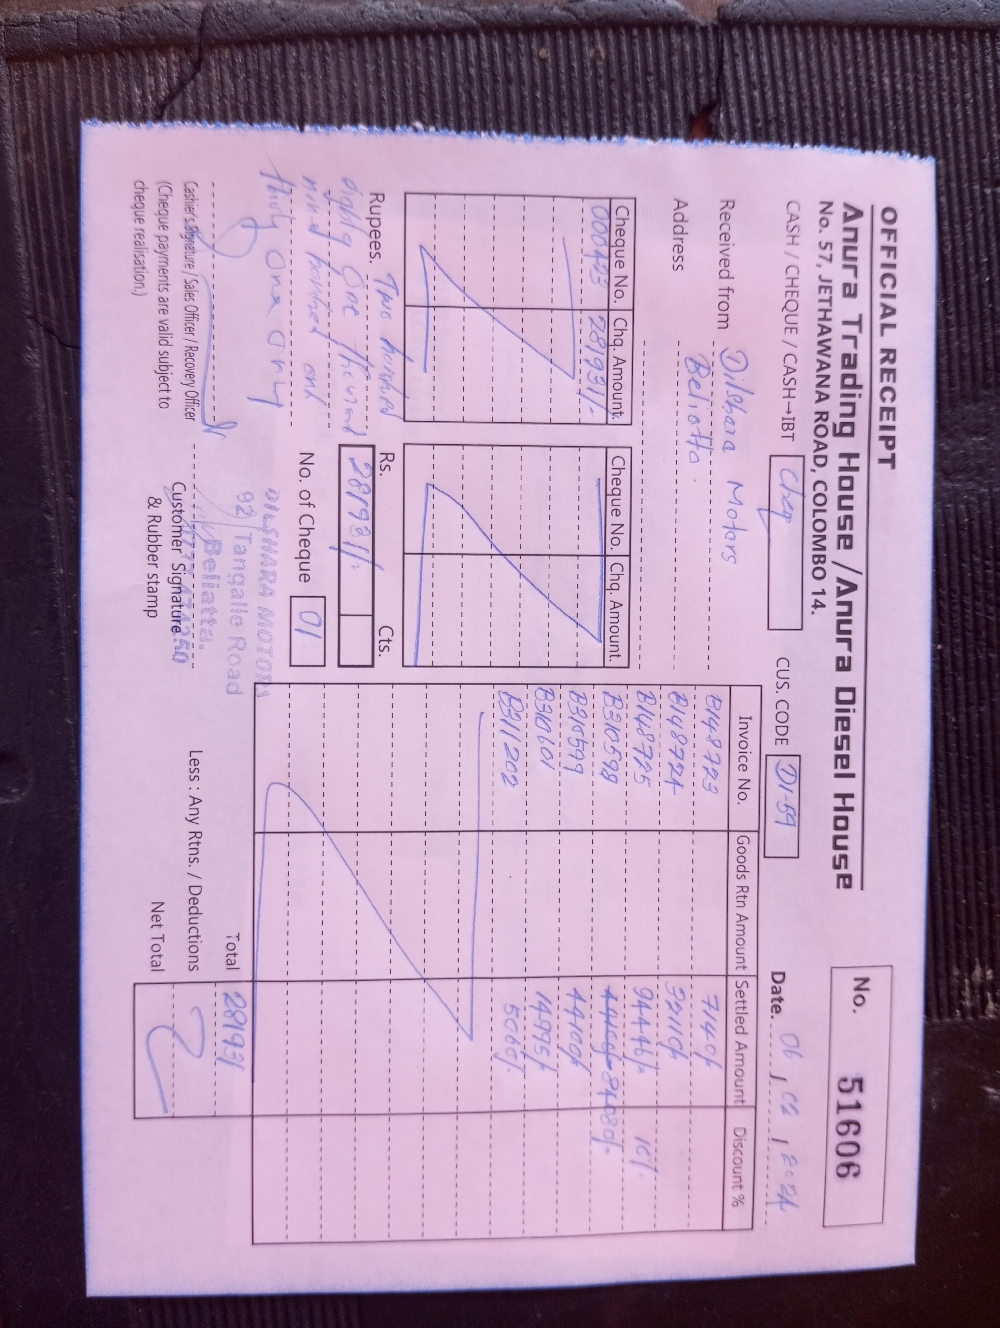 OFFICIAL RECEIPT
Anura Trading House / Anura Diesel House
No. 57, JETHAWANA ROAD, COLOMBO 14.
No. 51606
CASH / CHEQUE / CASH→IBT Cheq
CUS. CODE DI-59
Date. 06 / 02 / 2024
Received from Dilshara Motors
Address Beliatta.
Cheque No. Chq. Amount
000423 281931/-
Cheque No. Chq. Amount
Invoice No. Goods Rtn Amount Settled Amount Discount %
B148723 7140/-
B148724 32110/-
B148725 94446/- 10%
B310598 84080/-
B310599 44100/-
B310601 14995/-
B311202 5060/-
Rupees. Two hundred
eighty one thousand
nine hundred and
thirty one only
Rs. Cts.
281931/-
No. of Cheque 01
DILSHARA MOTORS
92, Tangalle Road
Beliatta.
Cashier's Signature / Sales Officer / Recovery Officer
(Cheque payments are valid subject to
cheque realisation.)
Customer Signature
& Rubber stamp
Total 281931
Less : Any Rtns. / Deductions
Net Total